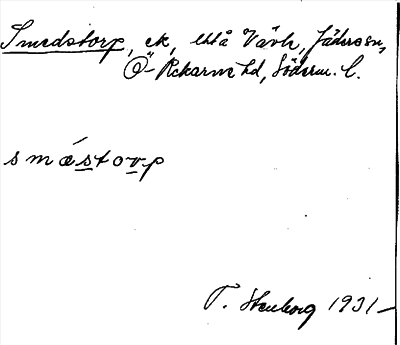 Smedstorp, ek, uttå Vävle, Jäders sn,
Ö-Rekarne hd, Söderm. l.
smástorp
T. Stenborg 1931